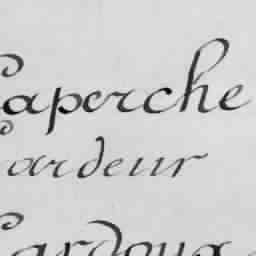 Laperche
Lardeur
Lardoux